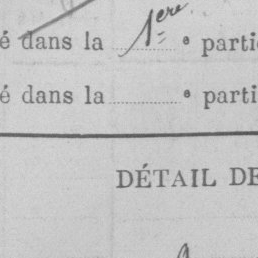 é dans la 1ere e parti
é dans la e parti
DÉTAIL DE